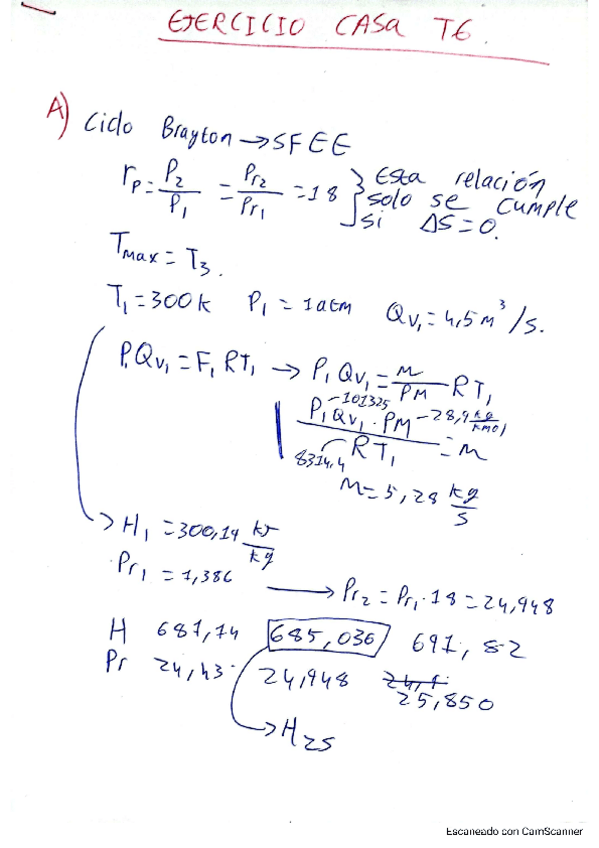 EJERCICIO CASA T6.
A) Ciclo Brayton → SFEE
rp = P2/P1 = Pr2/Pr1 = 18 } Esta relación
solo se cumple
si ΔS=0.
Tmax = T3.
T1 = 300 K P1 = 1 atm Qv1 = 4,5 m³/s.
P1 Qv1 = F1 RT1 → P1 Qv1 = m/PM RT1
P1 Qv1 · PM / RT1 = m
101325
28,9 kg/kmol
8314,4
m = 5,28 kg/s
→ H1 = 300,19 kJ/kg
Pr1 = 1,386 → Pr2 = Pr1 · 18 = 24,948
H 681,14 685,036 691,82
Pr 24,43 24,948 25,850
→ H2s
Escaneado con CamScanner